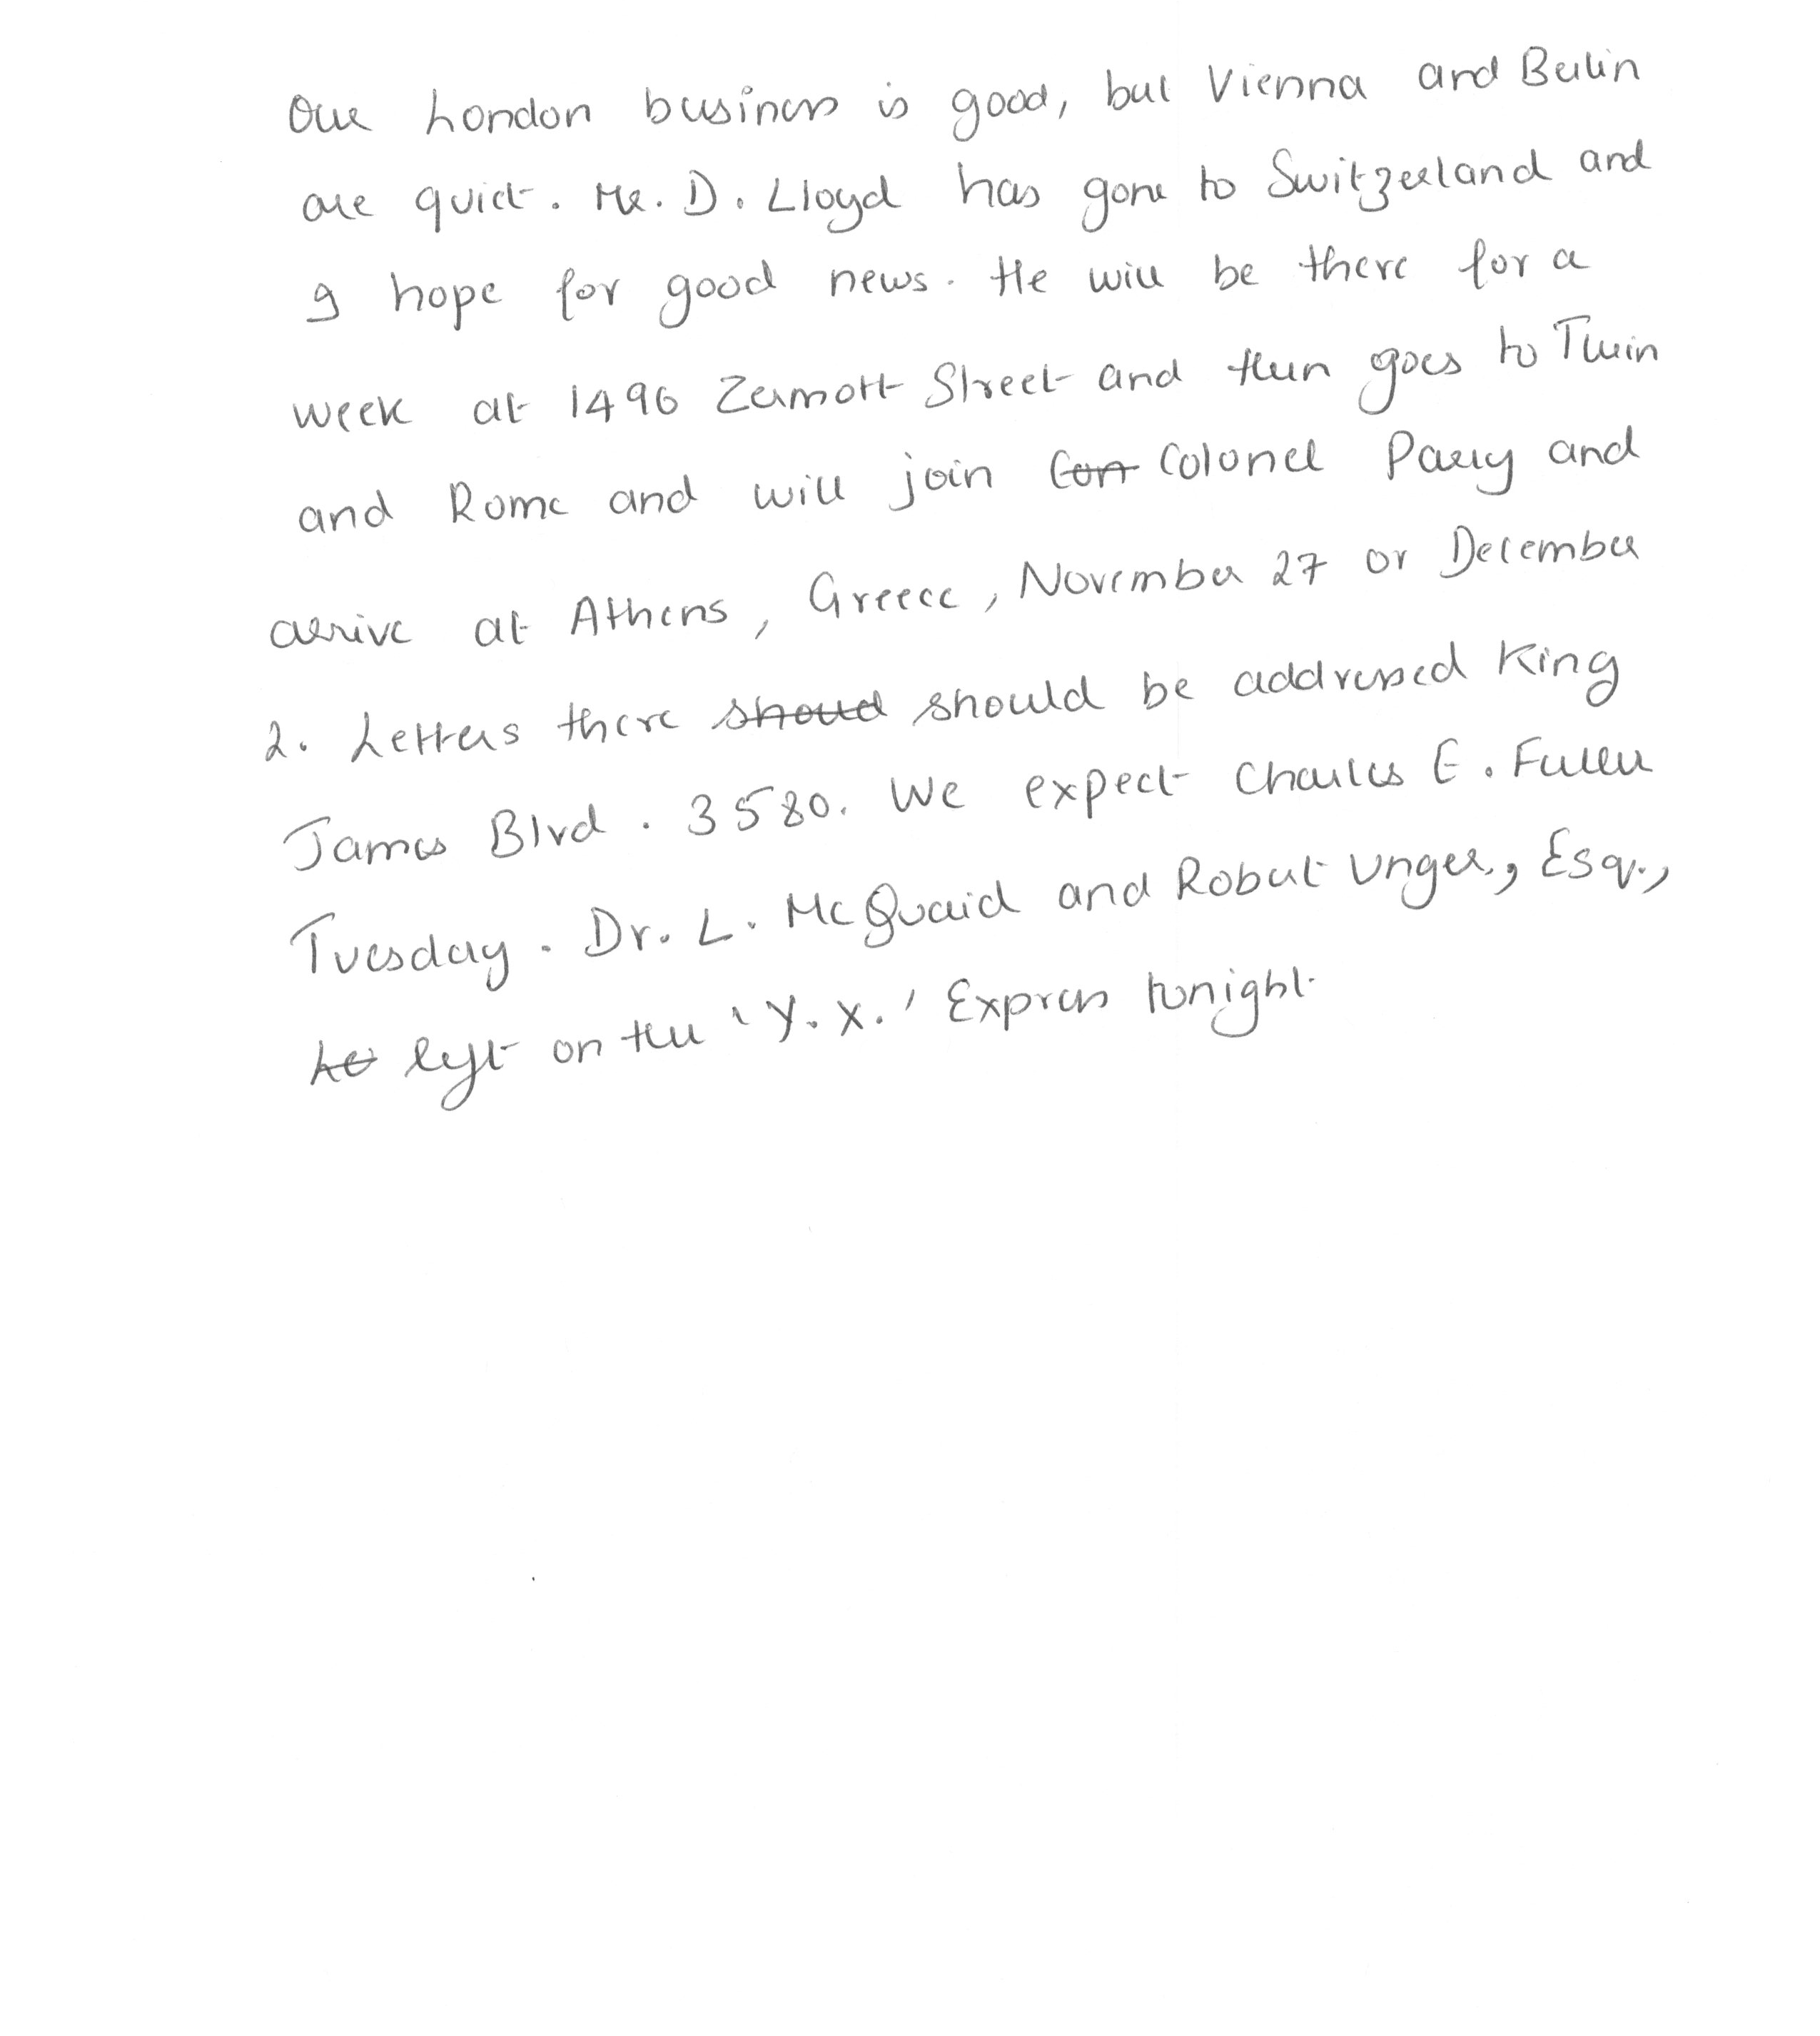 Our London business is good, but Vienna and Berlin
are quiet. Mr. D. Lloyd has gone to Switzerland and
I hope for good news. He will be there for a
week at 1496 Zermott Street and then goes to Turin
and Rome and will join Con Colonel Parry and
arrive at Athens, Greece, November 27 or December
2. Letters there shoud should be addressed King
James Blvd. 3580. We expect Charles E. Fuller
Tuesday. Dr. L. McQuaid and Robert Unger., Esq.,
le left on the 'Y.X.' Express tonight.